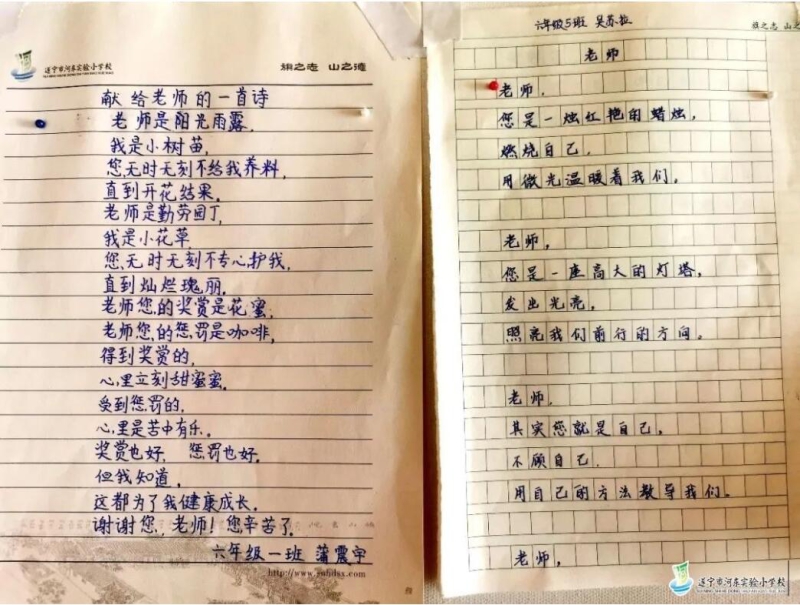 遂宁市河东实验小学校
旗之志 山之德
献给老师的一首诗
老师是阳光雨露,
我是小树苗,
您无时无刻不给我养料,
直到开花结果。
老师是勤劳园丁,
我是小花草
您无时无刻不专心护我,
直到灿烂瑰丽。
老师您的奖赏是花蜜,
老师您的惩罚是咖啡,
得到奖赏的,
心里立刻甜蜜蜜。
受到惩罚的,
心里是苦中有乐。
奖赏也好, 惩罚也好,
但我知道,
这都为了我健康成长。
谢谢您,老师!您辛苦了。
六年级一班 蒲震宇
六年级5班 吴苏拉
旗之志 山之
老师
老师,
您是一烛红艳的蜡烛,
燃烧自己,
用微光温暖着我们。
老师,
您是一座高大的灯塔,
发出光亮,
照亮我们前行的方向。
老师,
其实您就是自己,
不顾自己,
用自己的方法教导我们。
老师,
遂宁市河东实验小学校